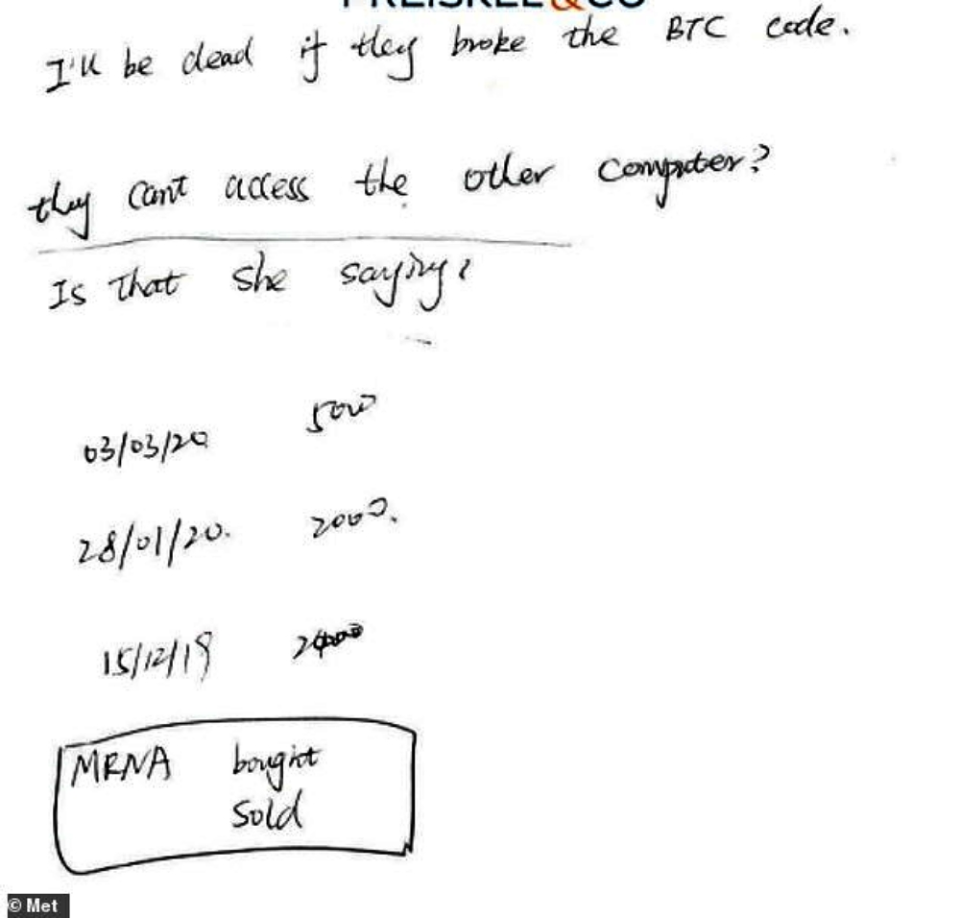 PREISKEL & CO
I'll be dead if they broke the BTC code.
they can't access the other computer?
Is that she saying?
03/03/20 5000
28/01/20. 2000.
15/12/19
MRNA bought
sold
© Met